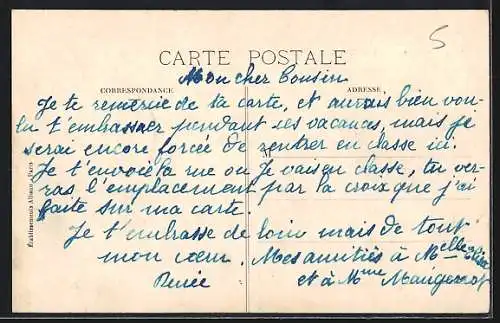 5
CARTE POSTALE
Mon cher Cousin
CORRESPONDANCE
ADRESSE
Je te remercie de ta carte, et aurais bien vou-
lu t'embrasser pendant ses vacances, mais je
serai encore forcée de rentrer en classe ici.
Je t'envoie la rue ou je vais en classe, tu ver-
ras l'emplacement par la croix que j'ai
faite sur ma carte.
Je t'embrasse de loin mais de tout
mon cœur. Mes amitiés à Melle Elisa
Renée et à Mme Maugenot
Etablissements Albaux, Paris